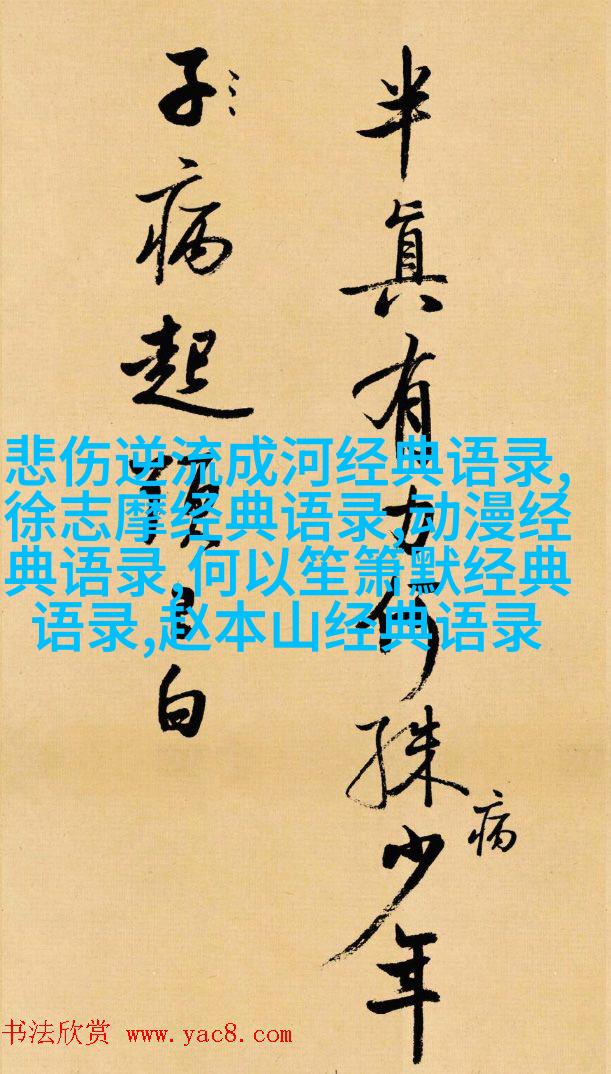 半眞有力何殊病少年
子病起頭已白
悲伤逆流成河经典语录,
徐志摩经典语录,动漫经
典语录,何以笙箫默经典
语录,赵本山经典语录
书法欣赏 www.yac8.com